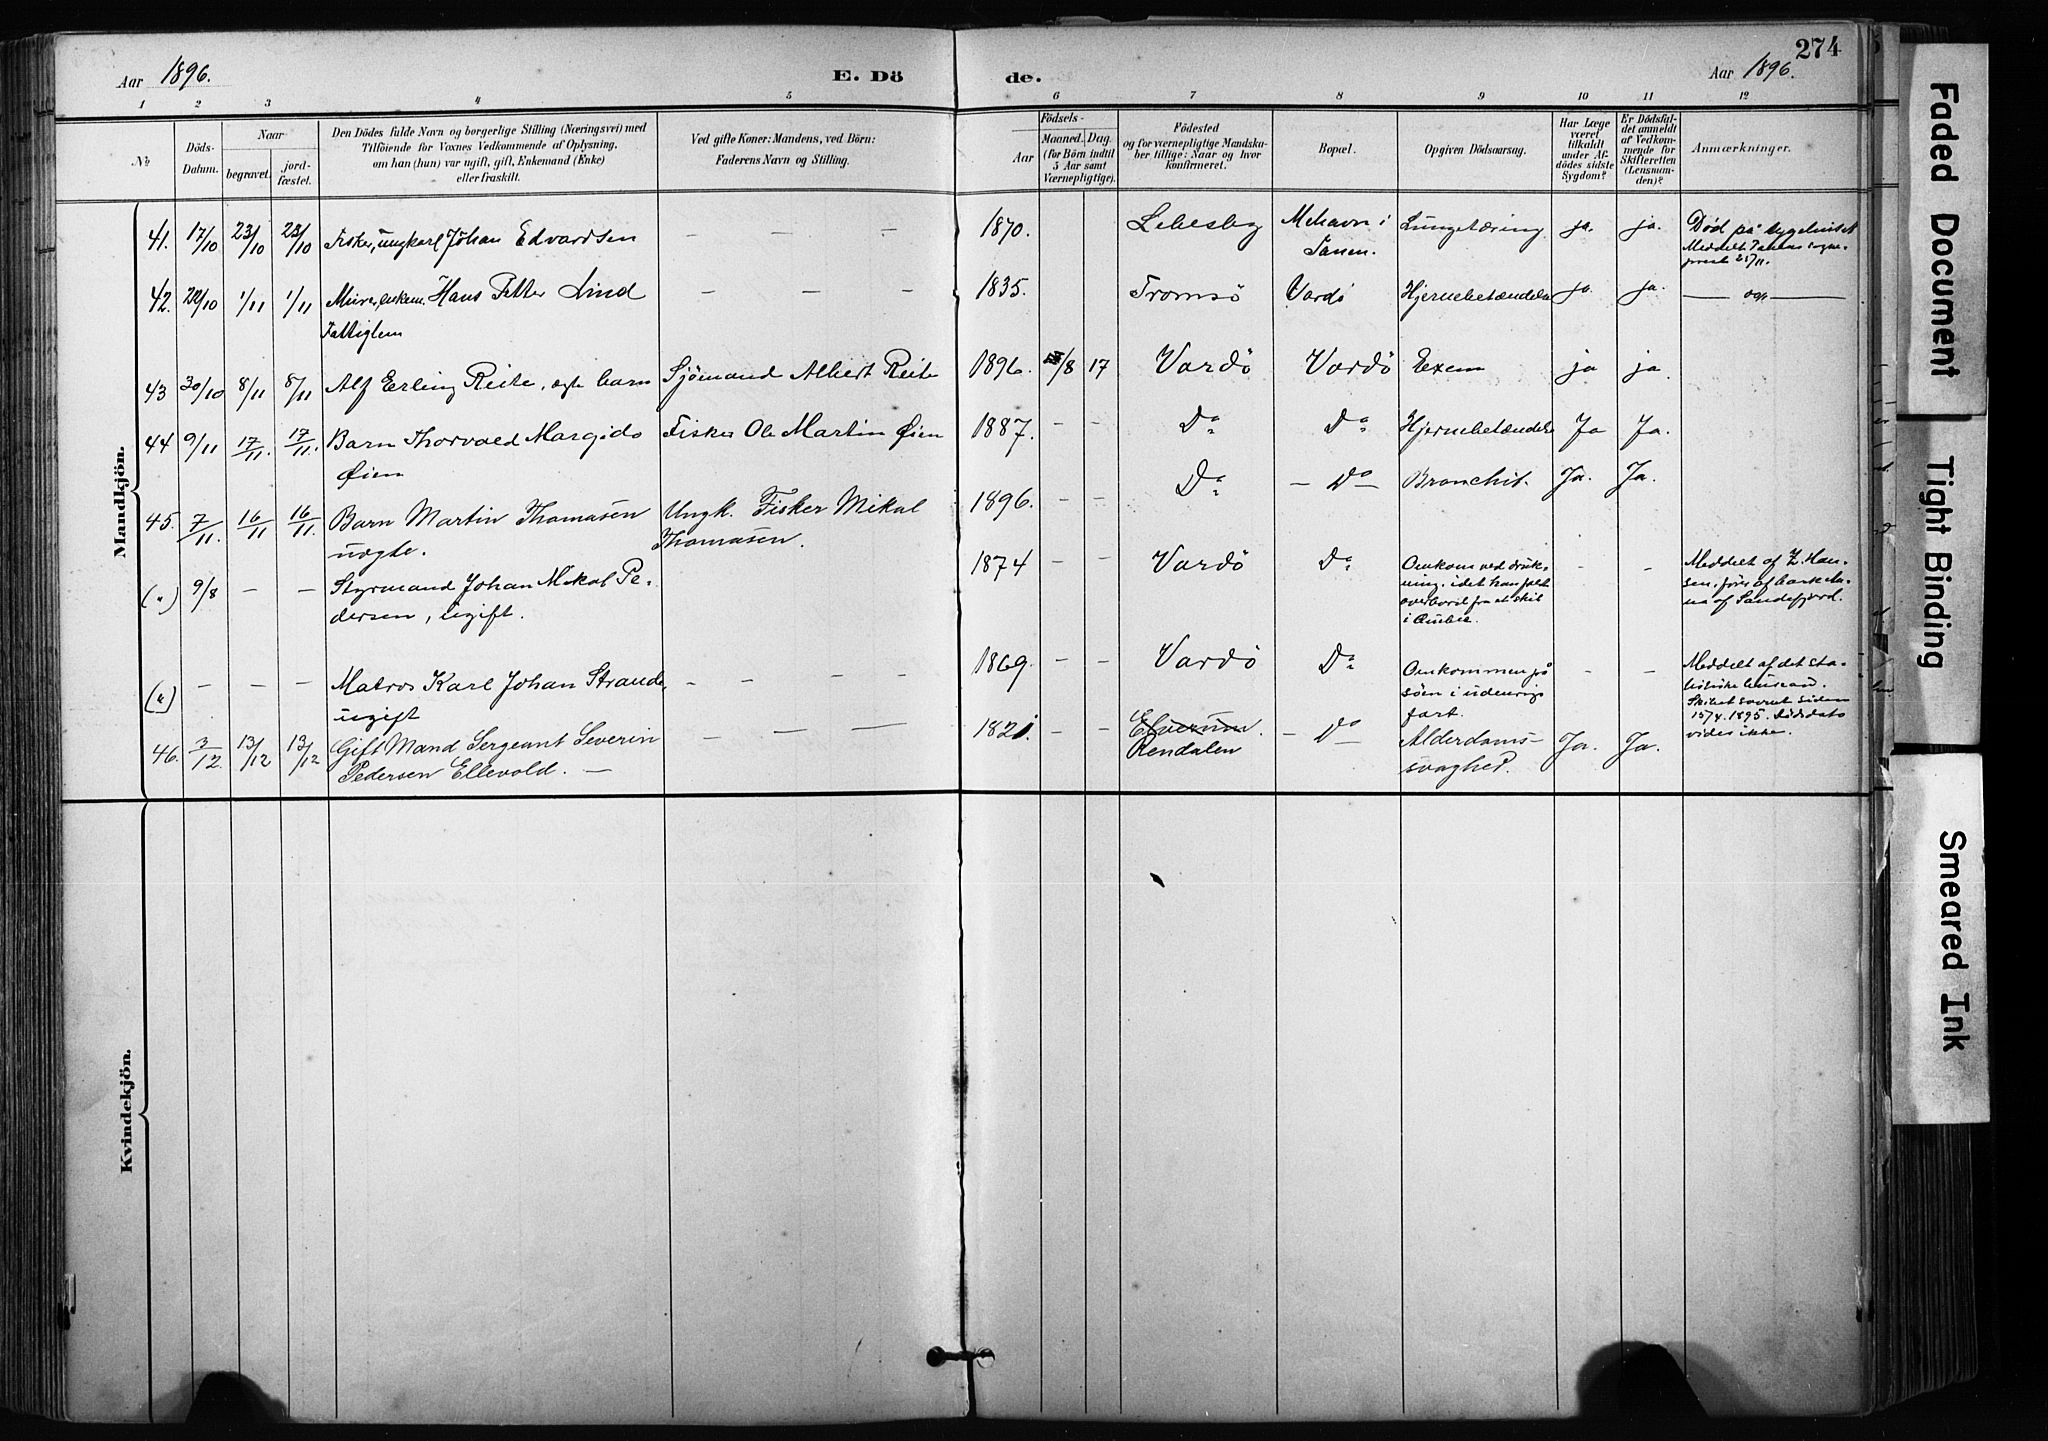 274
Aar 1896.
E. Dö
de.
Aar 1896.
1 2 3 4 5 6 7 8 9 10 11 12
No
Döds-
Datum.
Naar
begravet.
jord-
fæstet.
Den Dödes fulde Navn og borgerlige Stilling (Næringsvei) med
Tilföiende for Voxnes Vedkommende af Oplysning,
om han (hun) var ugift, gift, Enkemand (Enke)
eller fraskilt.
Ved gifte Koner: Mandens, ved Börn:
Faderens Navn og Stilling.
Födsels-
Aar
Maaned. Dag.
(for Börn indtil
5 Aar samt
Værnepligtige).
Födested
og for værnepligtige Mandska-
ber tillige: Naar og hvor
konfirmeret.
Bopæl.
Opgiven Dödsaarsag.
Har Læge
været
tilkaldt
under Af-
dödes sidste
Sygdom?
Er Dödsfal-
det anmeldt
af Vedkom-
mende for
Skifteretten
(Lensman-
den)?
Anmærkninger.
Mandkjön.
41. 17/10 23/10 23/10 Fisker, ungkarl Johan Edvardsen — — — 1870. Lebesby Mehavn i Tanen. Lungetæring ja. ja. Død på sygehuset
Meddelt Tanens sogne-
prest 21/11.
42. 28/10 1/11 1/11 Murer, enkem. Hans Petter Lind — — — 1835. Tromsö Vardö Hjernebetændelse ja. ja. — og —
Fattiglem
43 30/10 8/11 8/11 Alf Erling Reite, ægte barn Sjömand Albert Reite 1896. /8 17 Vardö Vardö Exem ja ja.
44 9/11 17/11. 17/11. Barn Thorvald Margido Fisker Ole Martin Øien 1887. — — Do Do Hjernebetændelse Ja Ja.
Øien
45. 7/11. 16/11 16/11. Barn Martin Thomasen Ungk. Fisker Mikal 1896. — — Do — Do — Bronchit. Ja. Ja.
uægte. Thomasen.
(") 9/8 — — Styrmand Johan Mikal Pe- 1874 — — Vardö Do Omkom ved druk- — — Meddelt af Z. Han-
dersen, ugift. ning, idet han faldt
overbord fra et skib
i Quebec.
sen, fører af bark An-
na af Sandefjord.
(") — — — Matros Karl Johan Strande, — — — 1869. — — Vardö Do Omkommen på — — Meddelt af det sta-
ugift söen i udenrigs
fart.
tistiske bureau.
Skibet savnet siden
15/4. 1895. Dödsdato
vides ikke.
46. 3/12. 13/12 13/12 Gift Mand Sergeant Severin — — — 1821. — — Elverum. — Do — Alderdoms- Ja. Ja.
Pedersen Ellevold. — Rendalen svaghed.
Kvindekjön.
Faded Document
Tight Binding
Smeared Ink